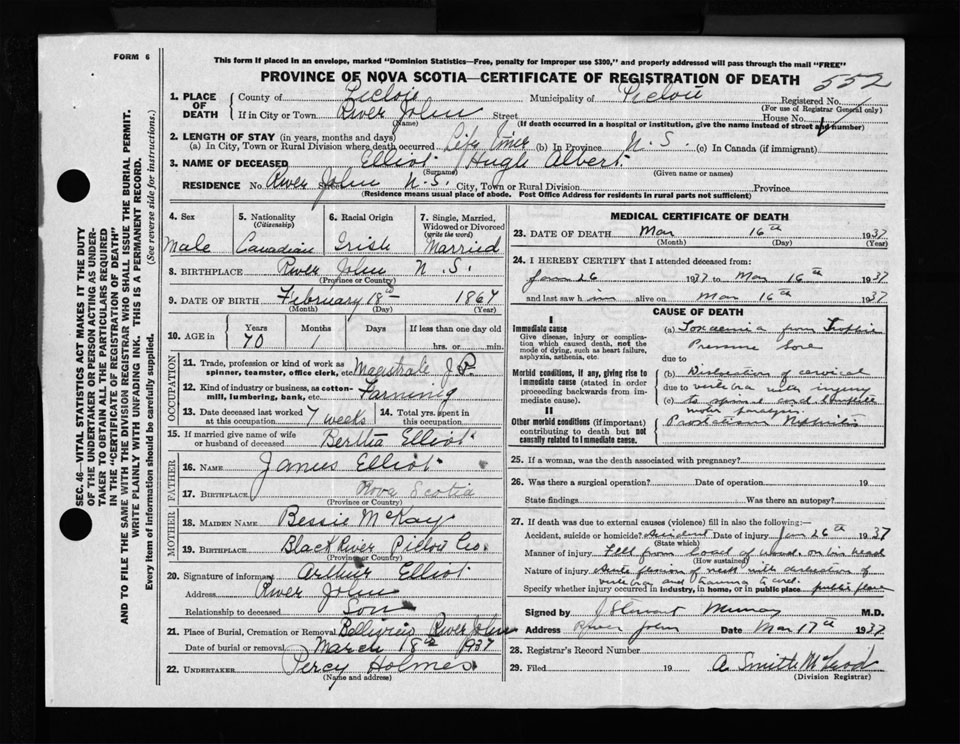 FORM 6
This form if placed in an envelope, marked "Dominion Statistics—Free, penalty for improper use $300," and properly addressed will pass through the mail "FREE"
PROVINCE OF NOVA SCOTIA—CERTIFICATE OF REGISTRATION OF DEATH
552
1. PLACE OF DEATH
County of Pictou Municipality of Pictou Registered No.
(For use of Registrar General only)
If in City or Town River John Street House No.
(Name) (If death occurred in a hospital or institution, give the name instead of street and number)
2. LENGTH OF STAY (in years, months and days)
(a) In City, Town or Rural Division where death occurred Life time (b) In Province N.S. (c) In Canada (if immigrant)
3. NAME OF DECEASED Elliot Hugh Albert
(Surname) (Given name or names)
RESIDENCE No. River John N.S. Street City, Town or Rural Division Province
(Residence means usual place of abode. Post Office Address for residents in rural parts not sufficient)
4. Sex
Male
5. Nationality
(Citizenship)
Canadian
6. Racial Origin
Irish
7. Single, Married, Widowed or Divorced
(write the word)
Married
8. BIRTHPLACE River John N.S.
(Province or Country)
9. DATE OF BIRTH February 18th 1867
(Month) (Day) (Year)
10. AGE in
Years Months Days If less than one day old
70 1 hrs. or min.
OCCUPATION
11. Trade, profession or kind of work as spinner, teamster, office clerk, etc. Magistrate J.P.
12. Kind of industry or business, as cotton-mill, lumbering, bank, etc. Farming
13. Date deceased last worked at this occupation 7 weeks
14. Total yrs. spent in this occupation
15. If married give name of wife or husband of deceased Bertha Elliot
FATHER
16. NAME James Elliot
17. BIRTHPLACE Nova Scotia
(Province or Country)
MOTHER
18. MAIDEN NAME Bessie McKay
19. BIRTHPLACE Black River Pictou Co.
(Province or Country)
20. Signature of informant Arthur Elliot
Address River John
Relationship to deceased Son
21. Place of Burial, Cremation or Removal River John
Date of burial or removal March 18th 1937
22. UNDERTAKER Percy Holmes
(Name and address)
MEDICAL CERTIFICATE OF DEATH
23. DATE OF DEATH Mar 16th 1937
(Month) (Day) (Year)
24. I HEREBY CERTIFY that I attended deceased from:
Jan 26 1937 to Mar 16th 1937
and last saw h im alive on Mar 16th 1937
CAUSE OF DEATH
I
Immediate cause
Give disease, injury or complication which caused death, not the mode of dying, such as heart failure, asphyxia, asthenia, etc.
(a) Toxaemia from Trophic
Pressure Sore
due to
Morbid conditions, if any, giving rise to immediate cause (stated in order proceeding backwards from immediate cause).
(b) Dislocation of cervical
due to vertebra with injury
(c) to spinal cord & complete
motor paralysis.
II
Other morbid conditions (if important) contributing to death but not causally related to immediate cause.
Nephritis
25. If a woman, was the death associated with pregnancy?
26. Was there a surgical operation? Date of operation 19
State findings Was there an autopsy?
27. If death was due to external causes (violence) fill in also the following:—
Accident, suicide or homicide? Accident Date of injury Jan 26th 1937
(State which)
Manner of injury Fell from load of wood on his head
(How sustained)
Nature of injury Acute flexion of neck with dislocation of
vertebra and trauma to cord.
Specify whether injury occurred in industry, in home, or in public place public place
Signed by J Stewart Murray M.D.
Address River John Date Mar 17th 1937
28. Registrar's Record Number
29. Filed 19 A. Smith McLeod
(Division Registrar)
SEC. 46—VITAL STATISTICS ACT MAKES IT THE DUTY
OF THE UNDERTAKER OR PERSON ACTING AS UNDER-
TAKER TO OBTAIN ALL THE PARTICULARS REQUIRED
IN THE "CERTIFICATE OF REGISTRATION OF DEATH"
AND TO FILE THE SAME WITH THE DIVISION REGISTRAR WHO SHALL ISSUE THE BURIAL PERMIT.
WRITE PLAINLY WITH UNFADING INK. THIS IS A PERMANENT RECORD.
Every item of information should be carefully supplied. (See reverse side for instructions.)